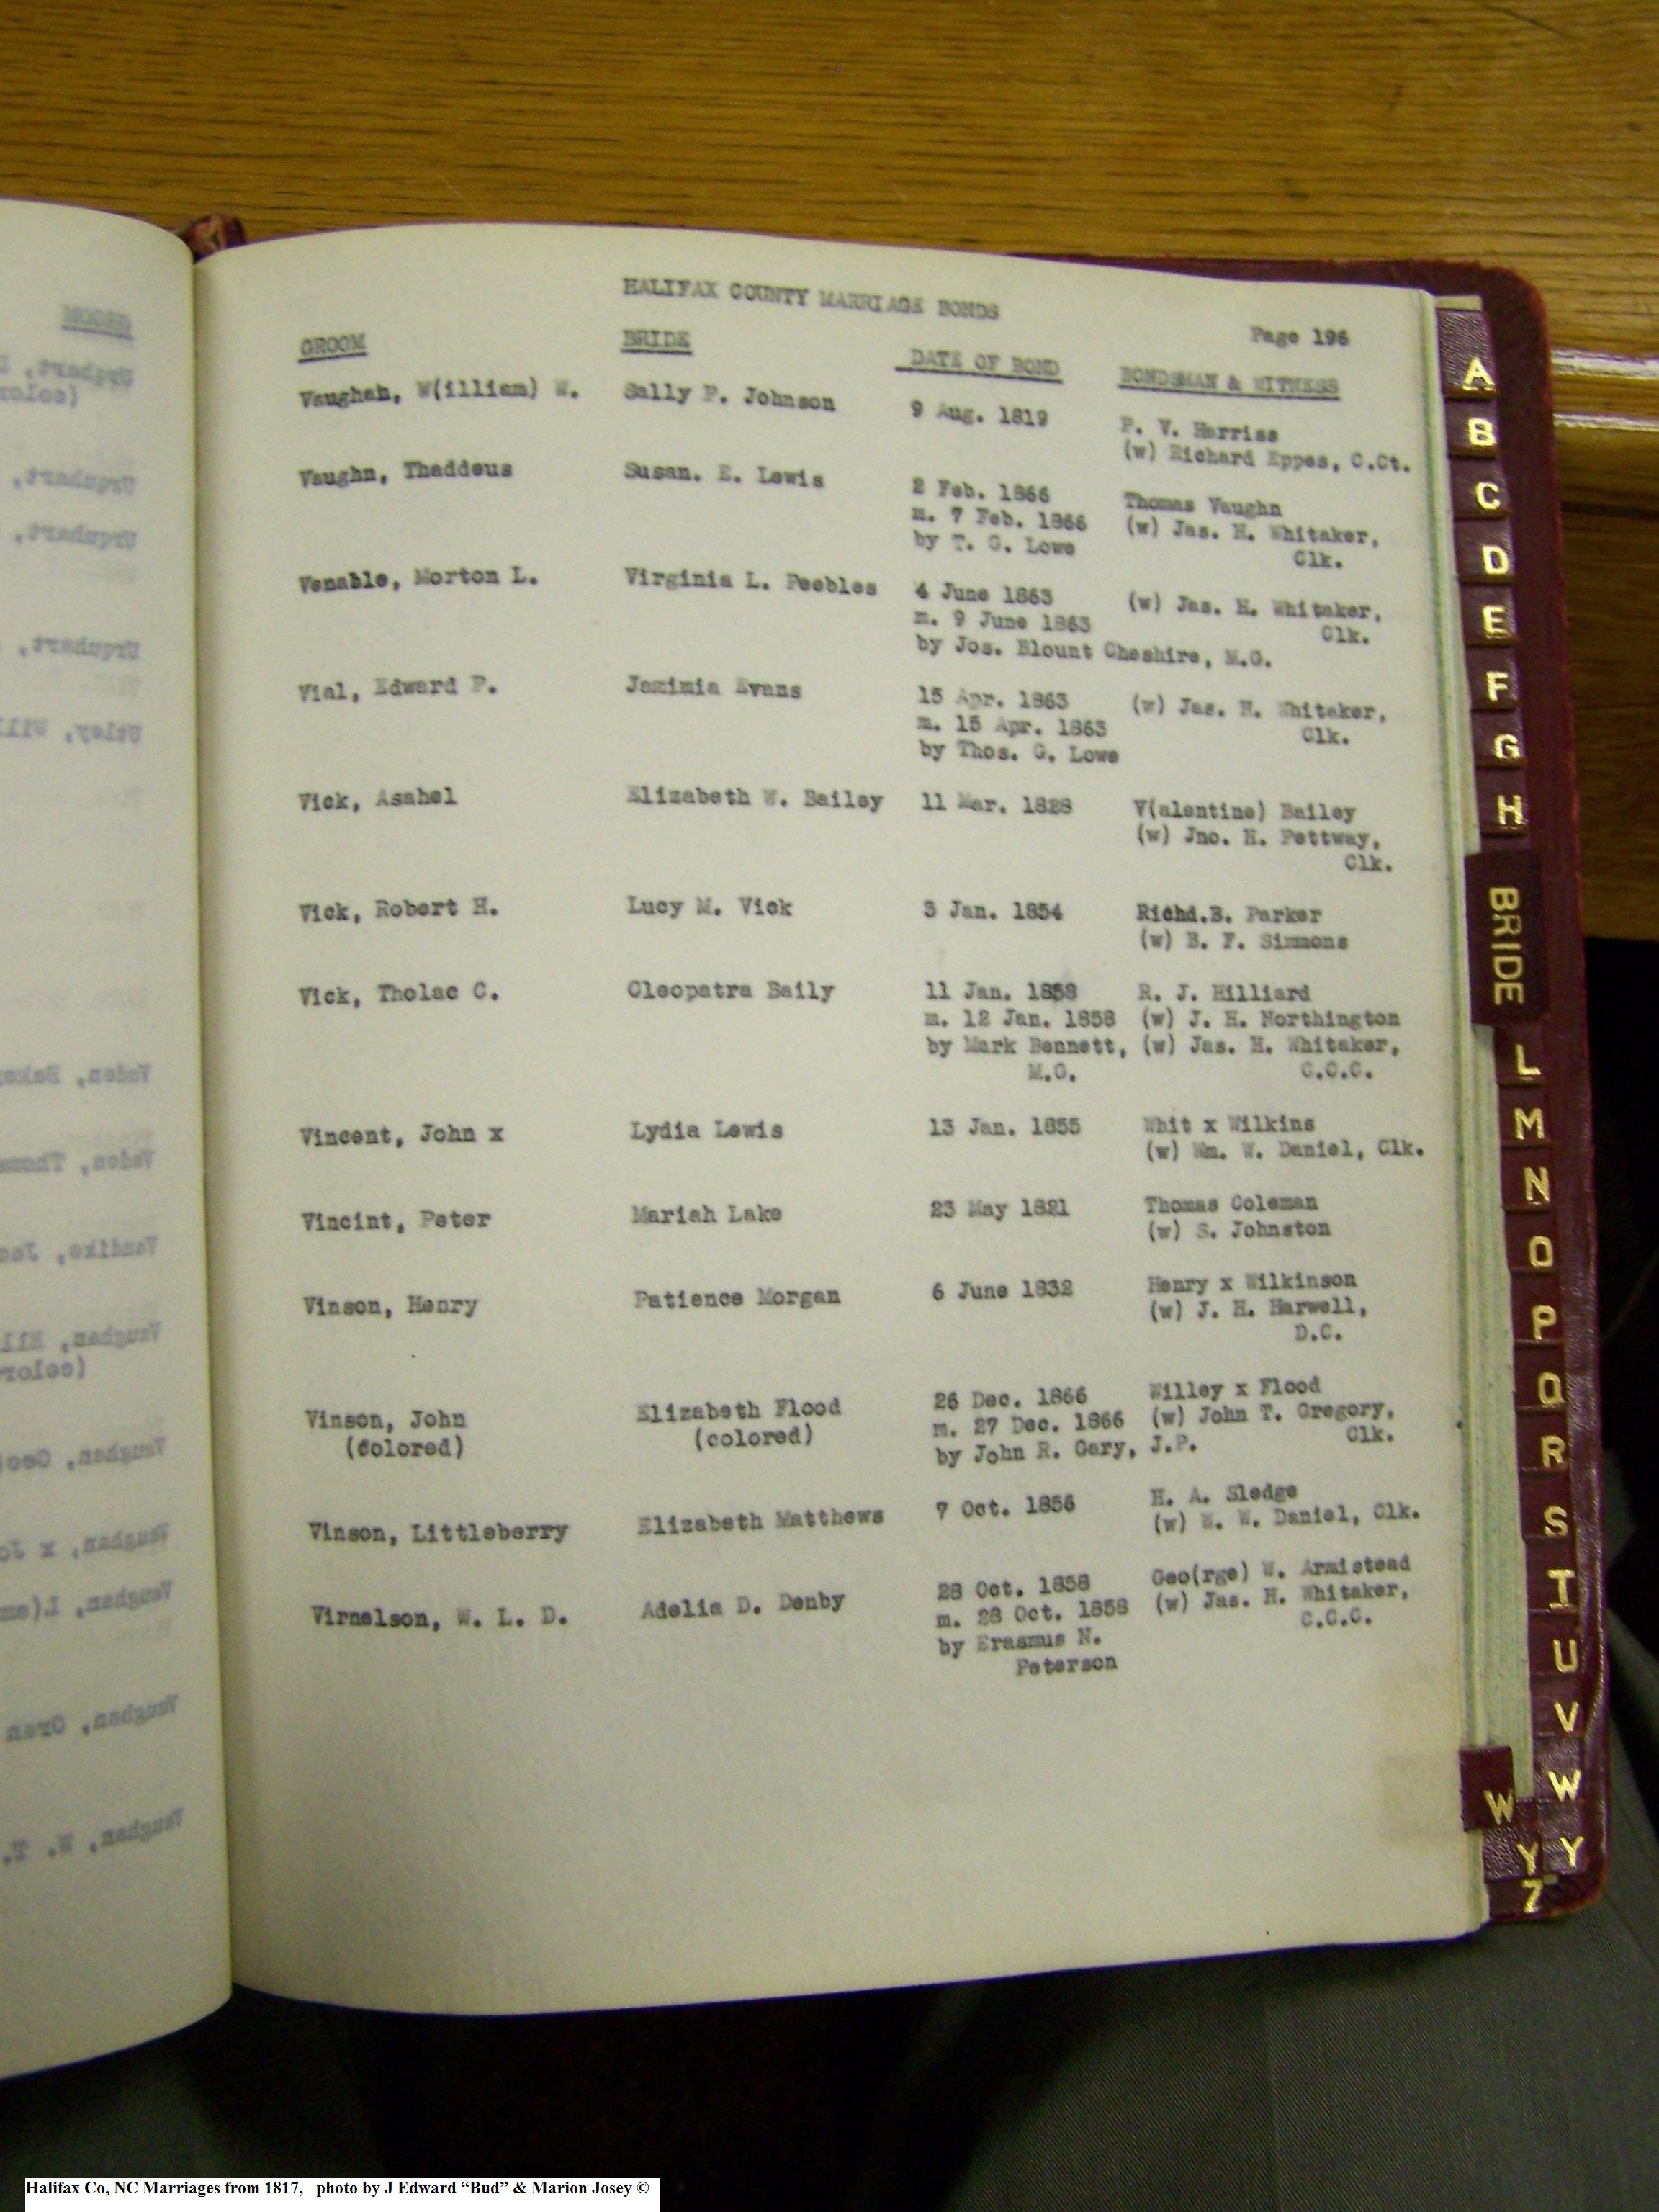 HALIFAX COUNTY MARRIAGE BONDS
Page 196
GROOM BRIDE DATE OF BOND BONDSMAN & WITNESS
Vaughan, W(illiam) W. Sally P. Johnson 9 Aug. 1819 P. V. Harriss
(w) Richard Eppes, C.Ct.
Vaughn, Thaddeus Susan. E. Lewis 2 Feb. 1866 Thomas Vaughn
m. 7 Feb. 1866 (w) Jas. H. Whitaker,
by T. G. Lowe Clk.
Venable, Morton L. Virginia L. Peebles 4 June 1863 (w) Jas. H. Whitaker,
m. 9 June 1863 Clk.
by Jos. Blount Cheshire, M.G.
Vial, Edward P. Jemimia Evans 15 Apr. 1863 (w) Jas. H. Whitaker,
m. 15 Apr. 1863 Clk.
by Thos. G. Lowe
Vick, Asahel Elizabeth W. Bailey 11 Mar. 1828 V(alentine) Bailey
(w) Jno. H. Pettway,
Clk.
Vick, Robert H. Lucy M. Vick 3 Jan. 1854 Richd.B. Parker
(w) B. F. Simmons
Vick, Tholac C. Cleopatra Baily 11 Jan. 1858 R. J. Hilliard
m. 12 Jan. 1858 (w) J. H. Northington
by Mark Bennett, (w) Jas. H. Whitaker,
M.G. C.C.C.
Vincent, John x Lydia Lewis 13 Jan. 1855 Whit x Wilkins
(w) Wm. W. Daniel, Clk.
Vincint, Peter Mariah Lake 23 May 1821 Thomas Coleman
(w) S. Johnston
Vinson, Henry Patience Morgan 6 June 1832 Henry x Wilkinson
(w) J. H. Harwell,
D.C.
Vinson, John Elizabeth Flood 26 Dec. 1866 Willey x Flood
(colored) (colored) m. 27 Dec. 1866 (w) John T. Gregory,
by John R. Gary, J.P. Clk.
Vinson, Littleberry Elizabeth Matthews 7 Oct. 1856 H. A. Sledge
(w) W. W. Daniel, Clk.
Virnelson, W. L. D. Adelia D. Denby 28 Oct. 1858 Geo(rge) W. Armistead
m. 28 Oct. 1858 (w) Jas. H. Whitaker,
by Erasmus N. C.C.C.
Peterson
A
B
C
D
E
F
G
H
BRIDE
L
M
N
O
P
Q
R
S
T
U
V
W
W
Y
Y
Z
Halifax Co, NC Marriages from 1817, photo by J Edward “Bud” & Marion Josey ©